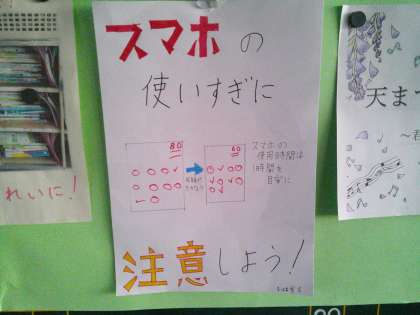 スマホの
使いすぎに
80
60
スマホの
使用時間は
1時間を
目安に
注意しよう!
れいに!
天まで